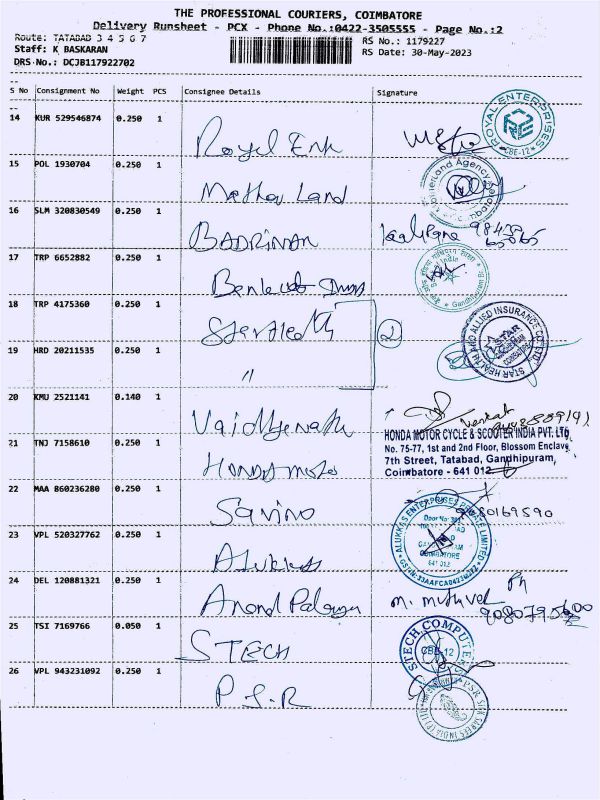 THE PROFESSIONAL COURIERS, COIMBATORE
Delivery Runsheet - PCX - Phone No.:0422-3505555 - Page No.:2
Route: TATABAD 3 4 5 6 7
RS No.: 1179227
Staff: K BASKARAN
RS Date: 30-May-2023
DRS No.: DCJB117922702
S No Consignment No Weight PCS Consignee Details Signature
14 KUR 529546874 0.250 1 Royal Ent
ROYAL ENTERPRISES CBE-12
15 POL 1930704 0.250 1 Mather Land
16 SLM 320830549 0.250 1 BADRINAN Kalpana
17 TRP 6652882 0.250 1
18 TRP 4175360 0.250 1 Star Health 2
STAR HEALTH AND ALLIED INSURANCE CO. LTD.
19 HRD 20211535 0.250 1 "
20 KMU 2521141 0.140 1 Vaidhyanath Venkat
21 TNJ 7158610 0.250 1 Honda moto
HONDA MOTOR CYCLE & SCOOTER INDIA PVT. LTD.
No. 75-77, 1st and 2nd Floor, Blossom Enclave,
7th Street, Tatabad, Gandhipuram,
Coimbatore - 641 012
22 MAA 860236280 0.250 1 Savino 9080169590
23 VPL 520327762 0.250 1 Alukkas
ALUKKAS ENTERPRISES PRIVATE LIMITED
COIMBATORE
641 012
24 DEL 120881321 0.250 1 m. muthuvel Ph
25 TSI 7169766 0.050 1 STECH
STECH COMPUTER CBE-12
26 VPL 943231092 0.250 1 P.S.R
PSR SILK SAREES INDIA